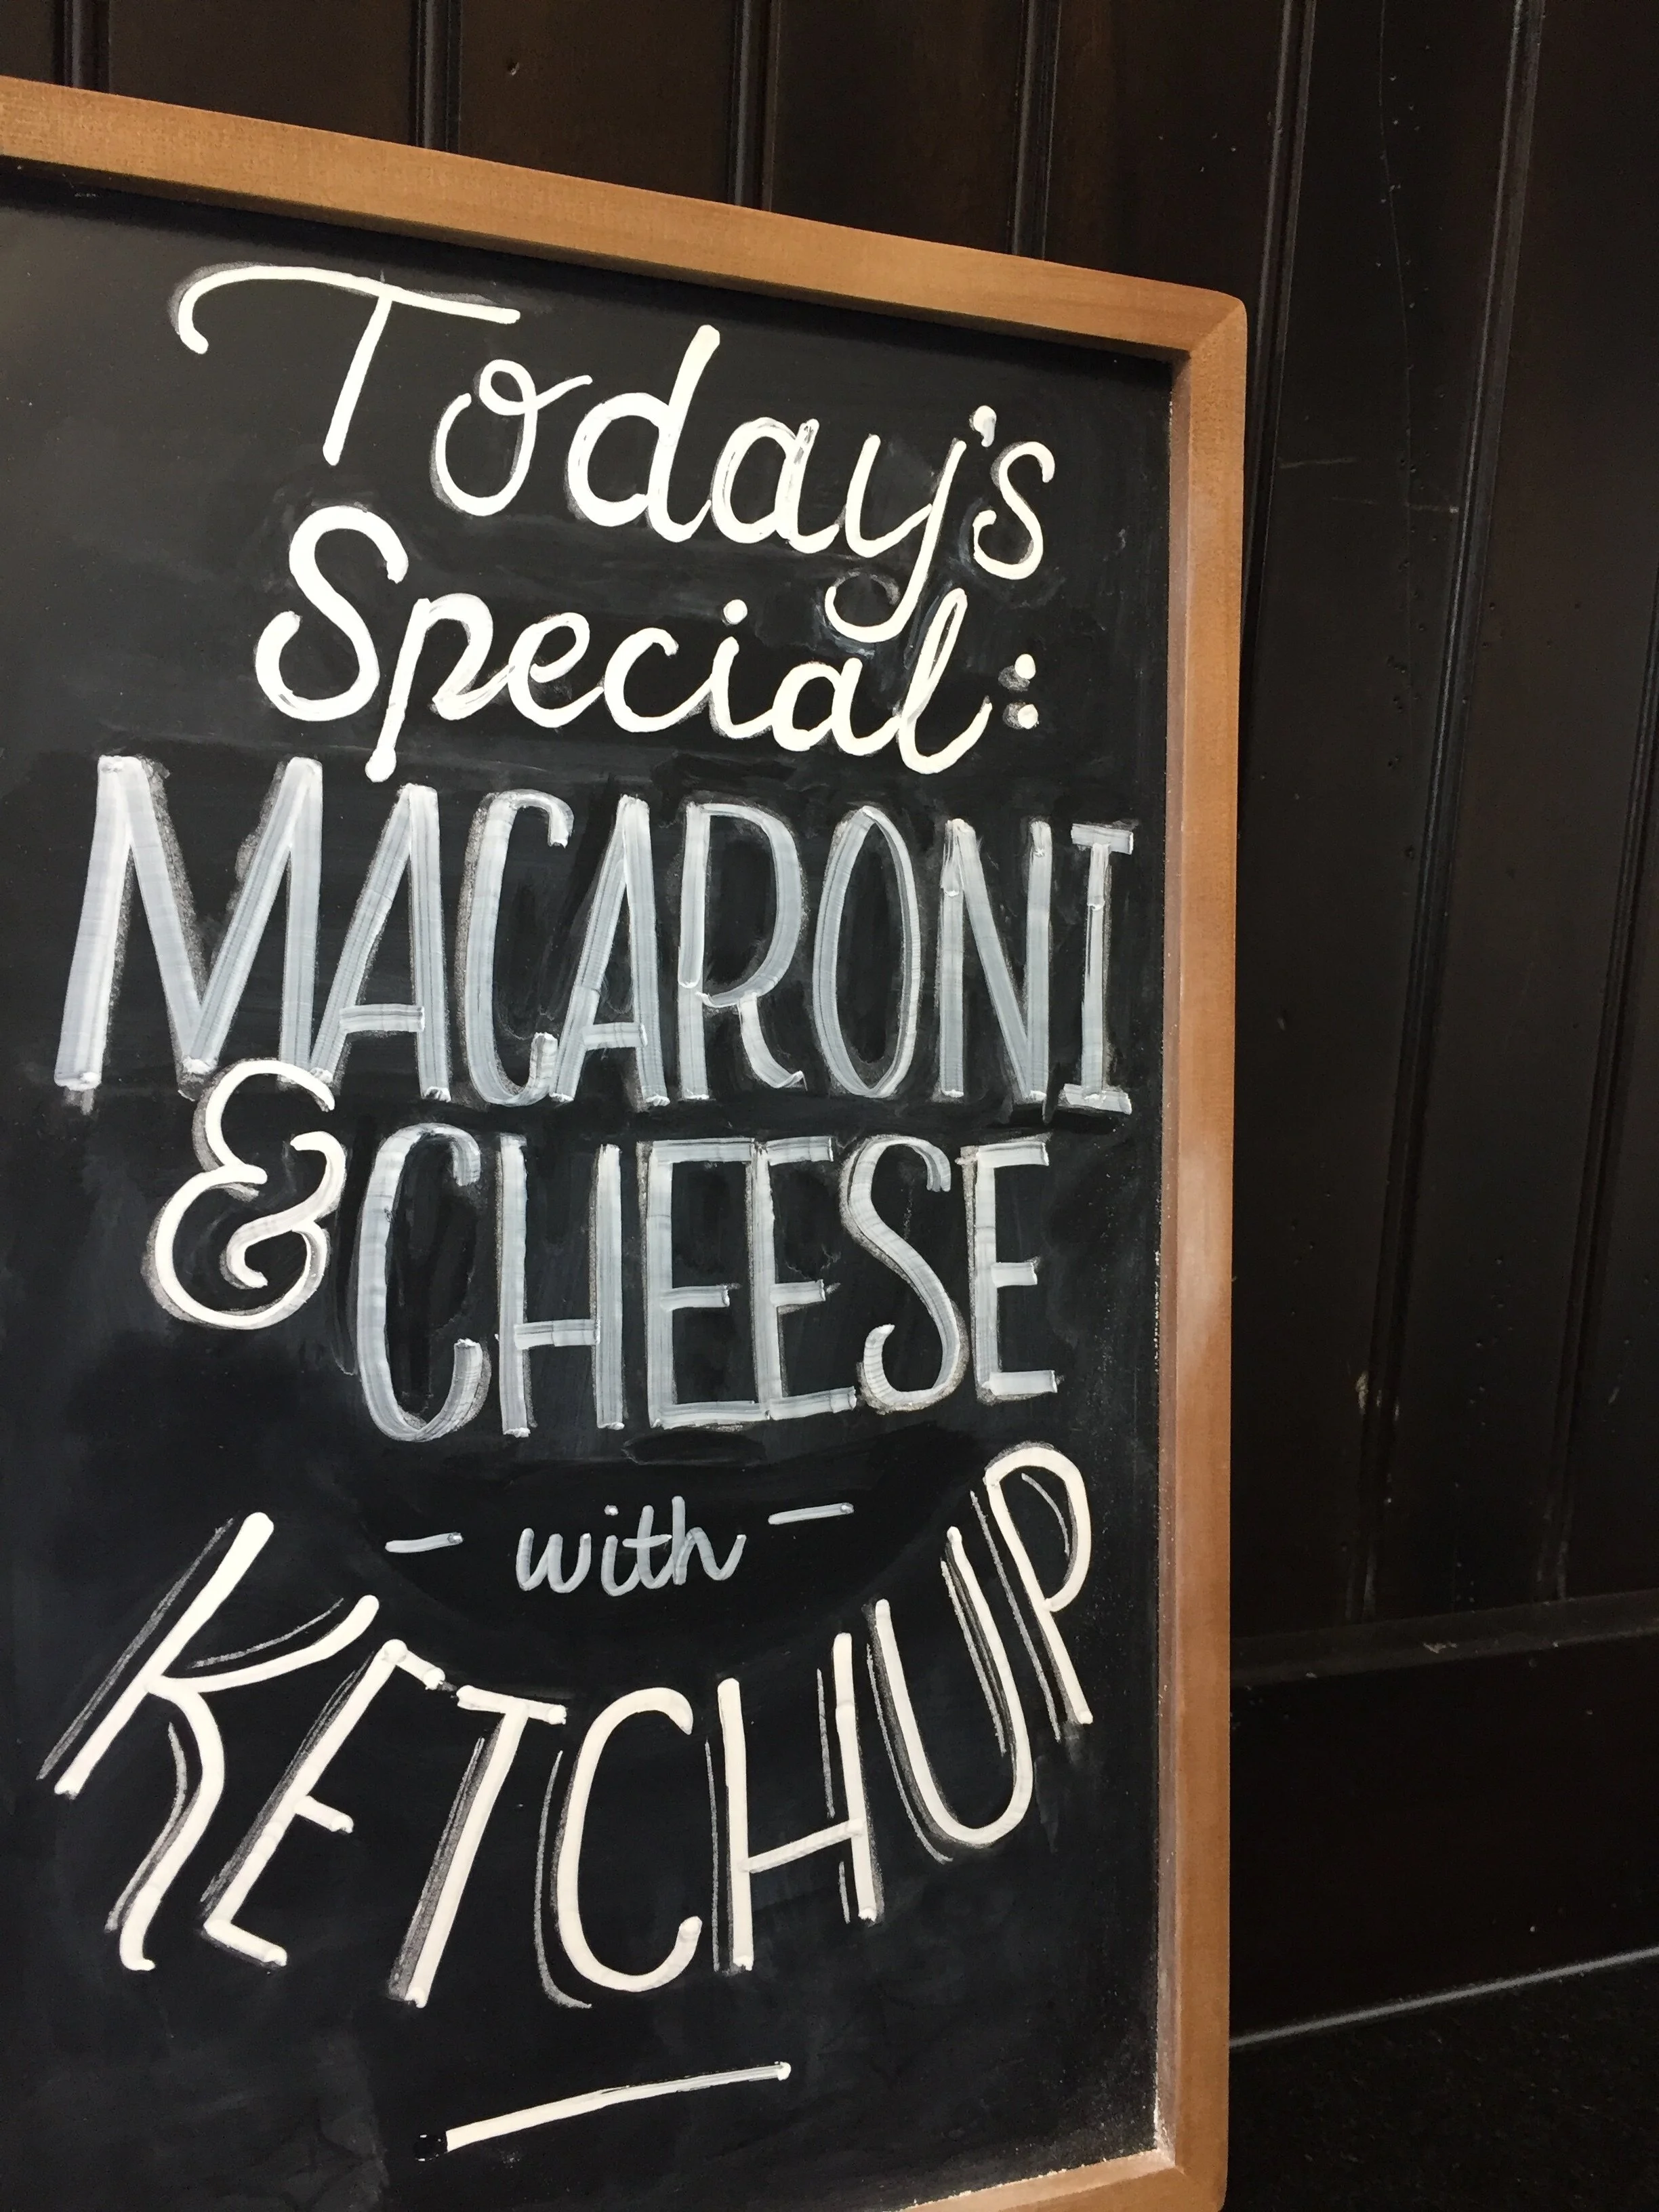 Today's
Special:
MACARONI
& CHEESE
- with -
KETCHUP